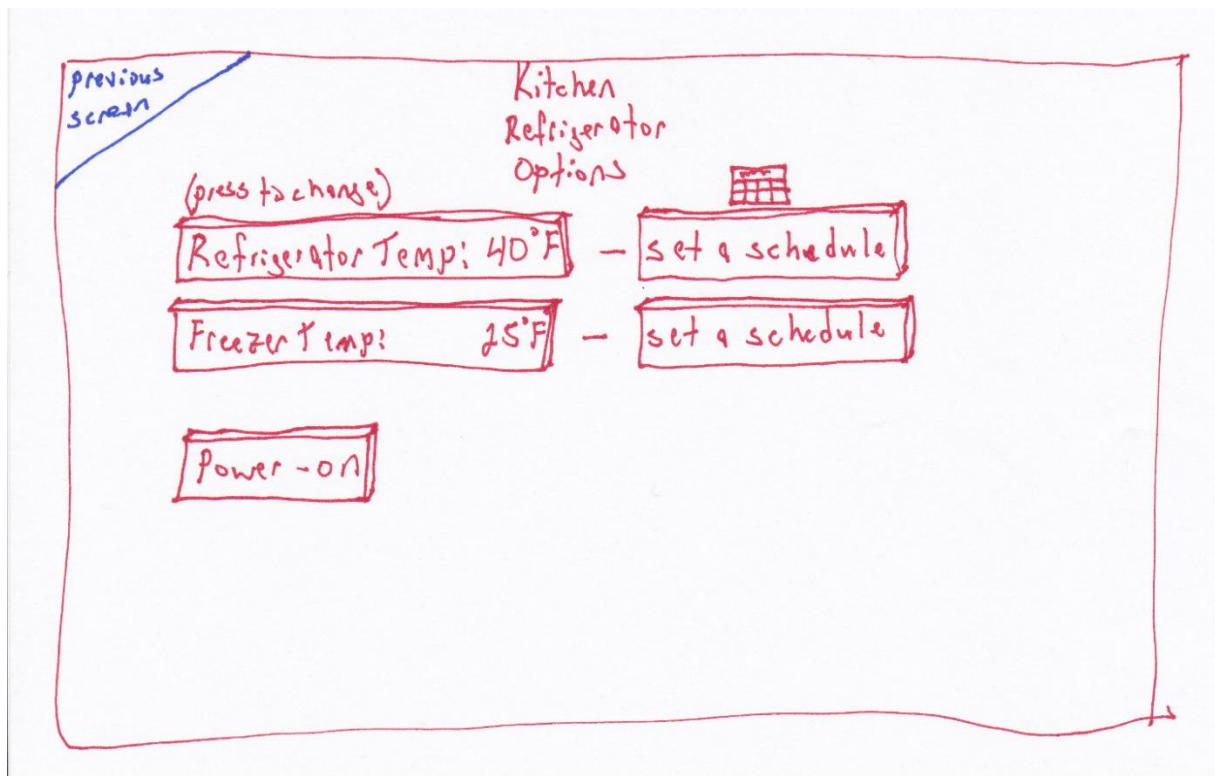 previous
screen
Kitchen
Refrigerator
Options
(press to change)
Refrigerator Temp: 40°F - set a schedule
Freezer Temp: 25°F - set a schedule
Power-on